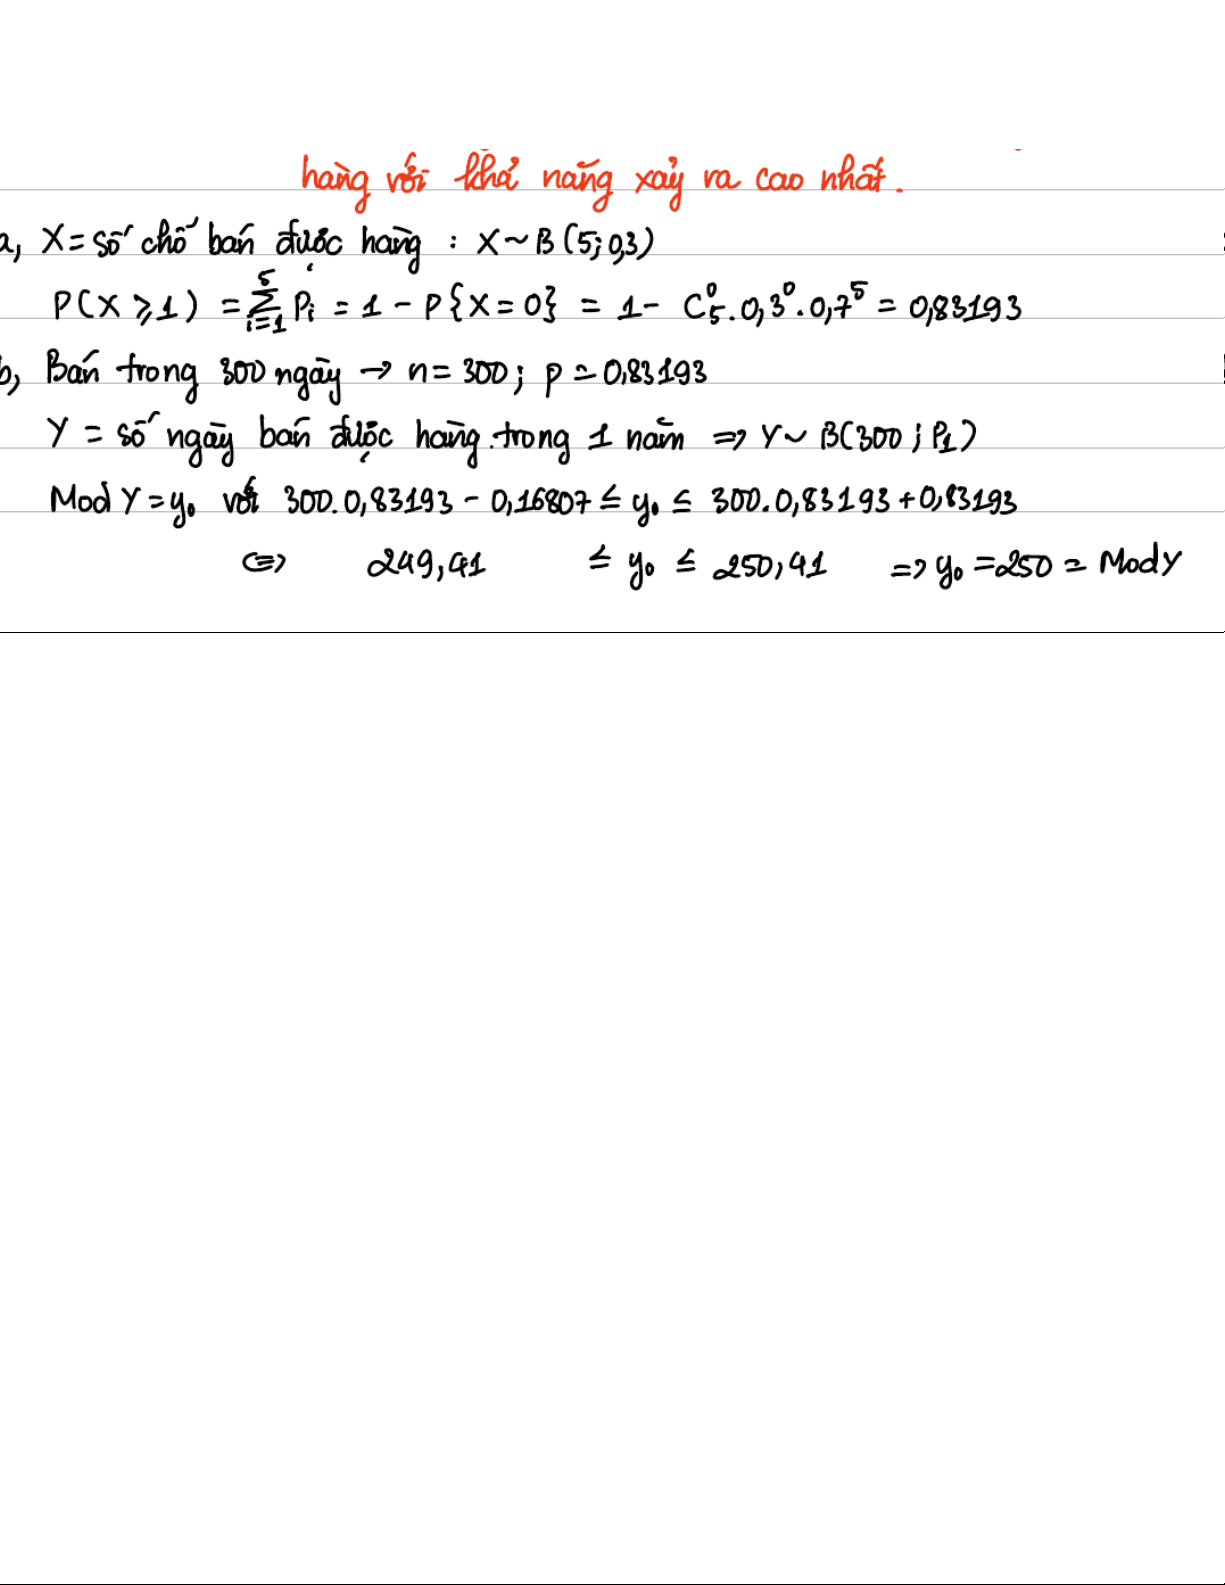 hàng với khả năng xảy ra cao nhất.
a, X = số chỗ bán được hàng : X ~ B (5; 0,3)
P(X ≥ 1) = \sum_{i=1}^{5} P_i = 1 - P{X = 0} = 1 - C_5^0 . 0,3^0 . 0,7^5 = 0,83193
b, Bán trong 300 ngày → n = 300 ; p = 0,83193
Y = số ngày bán được hàng trong 1 năm => Y ~ B(300 ; P_1)
Mod Y = y_0 với 300. 0,83193 - 0,16807 ≤ y_0 ≤ 300. 0,83193 + 0,83193
<=> 249,41 ≤ y_0 ≤ 250,41 => y_0 = 250 = Mod Y